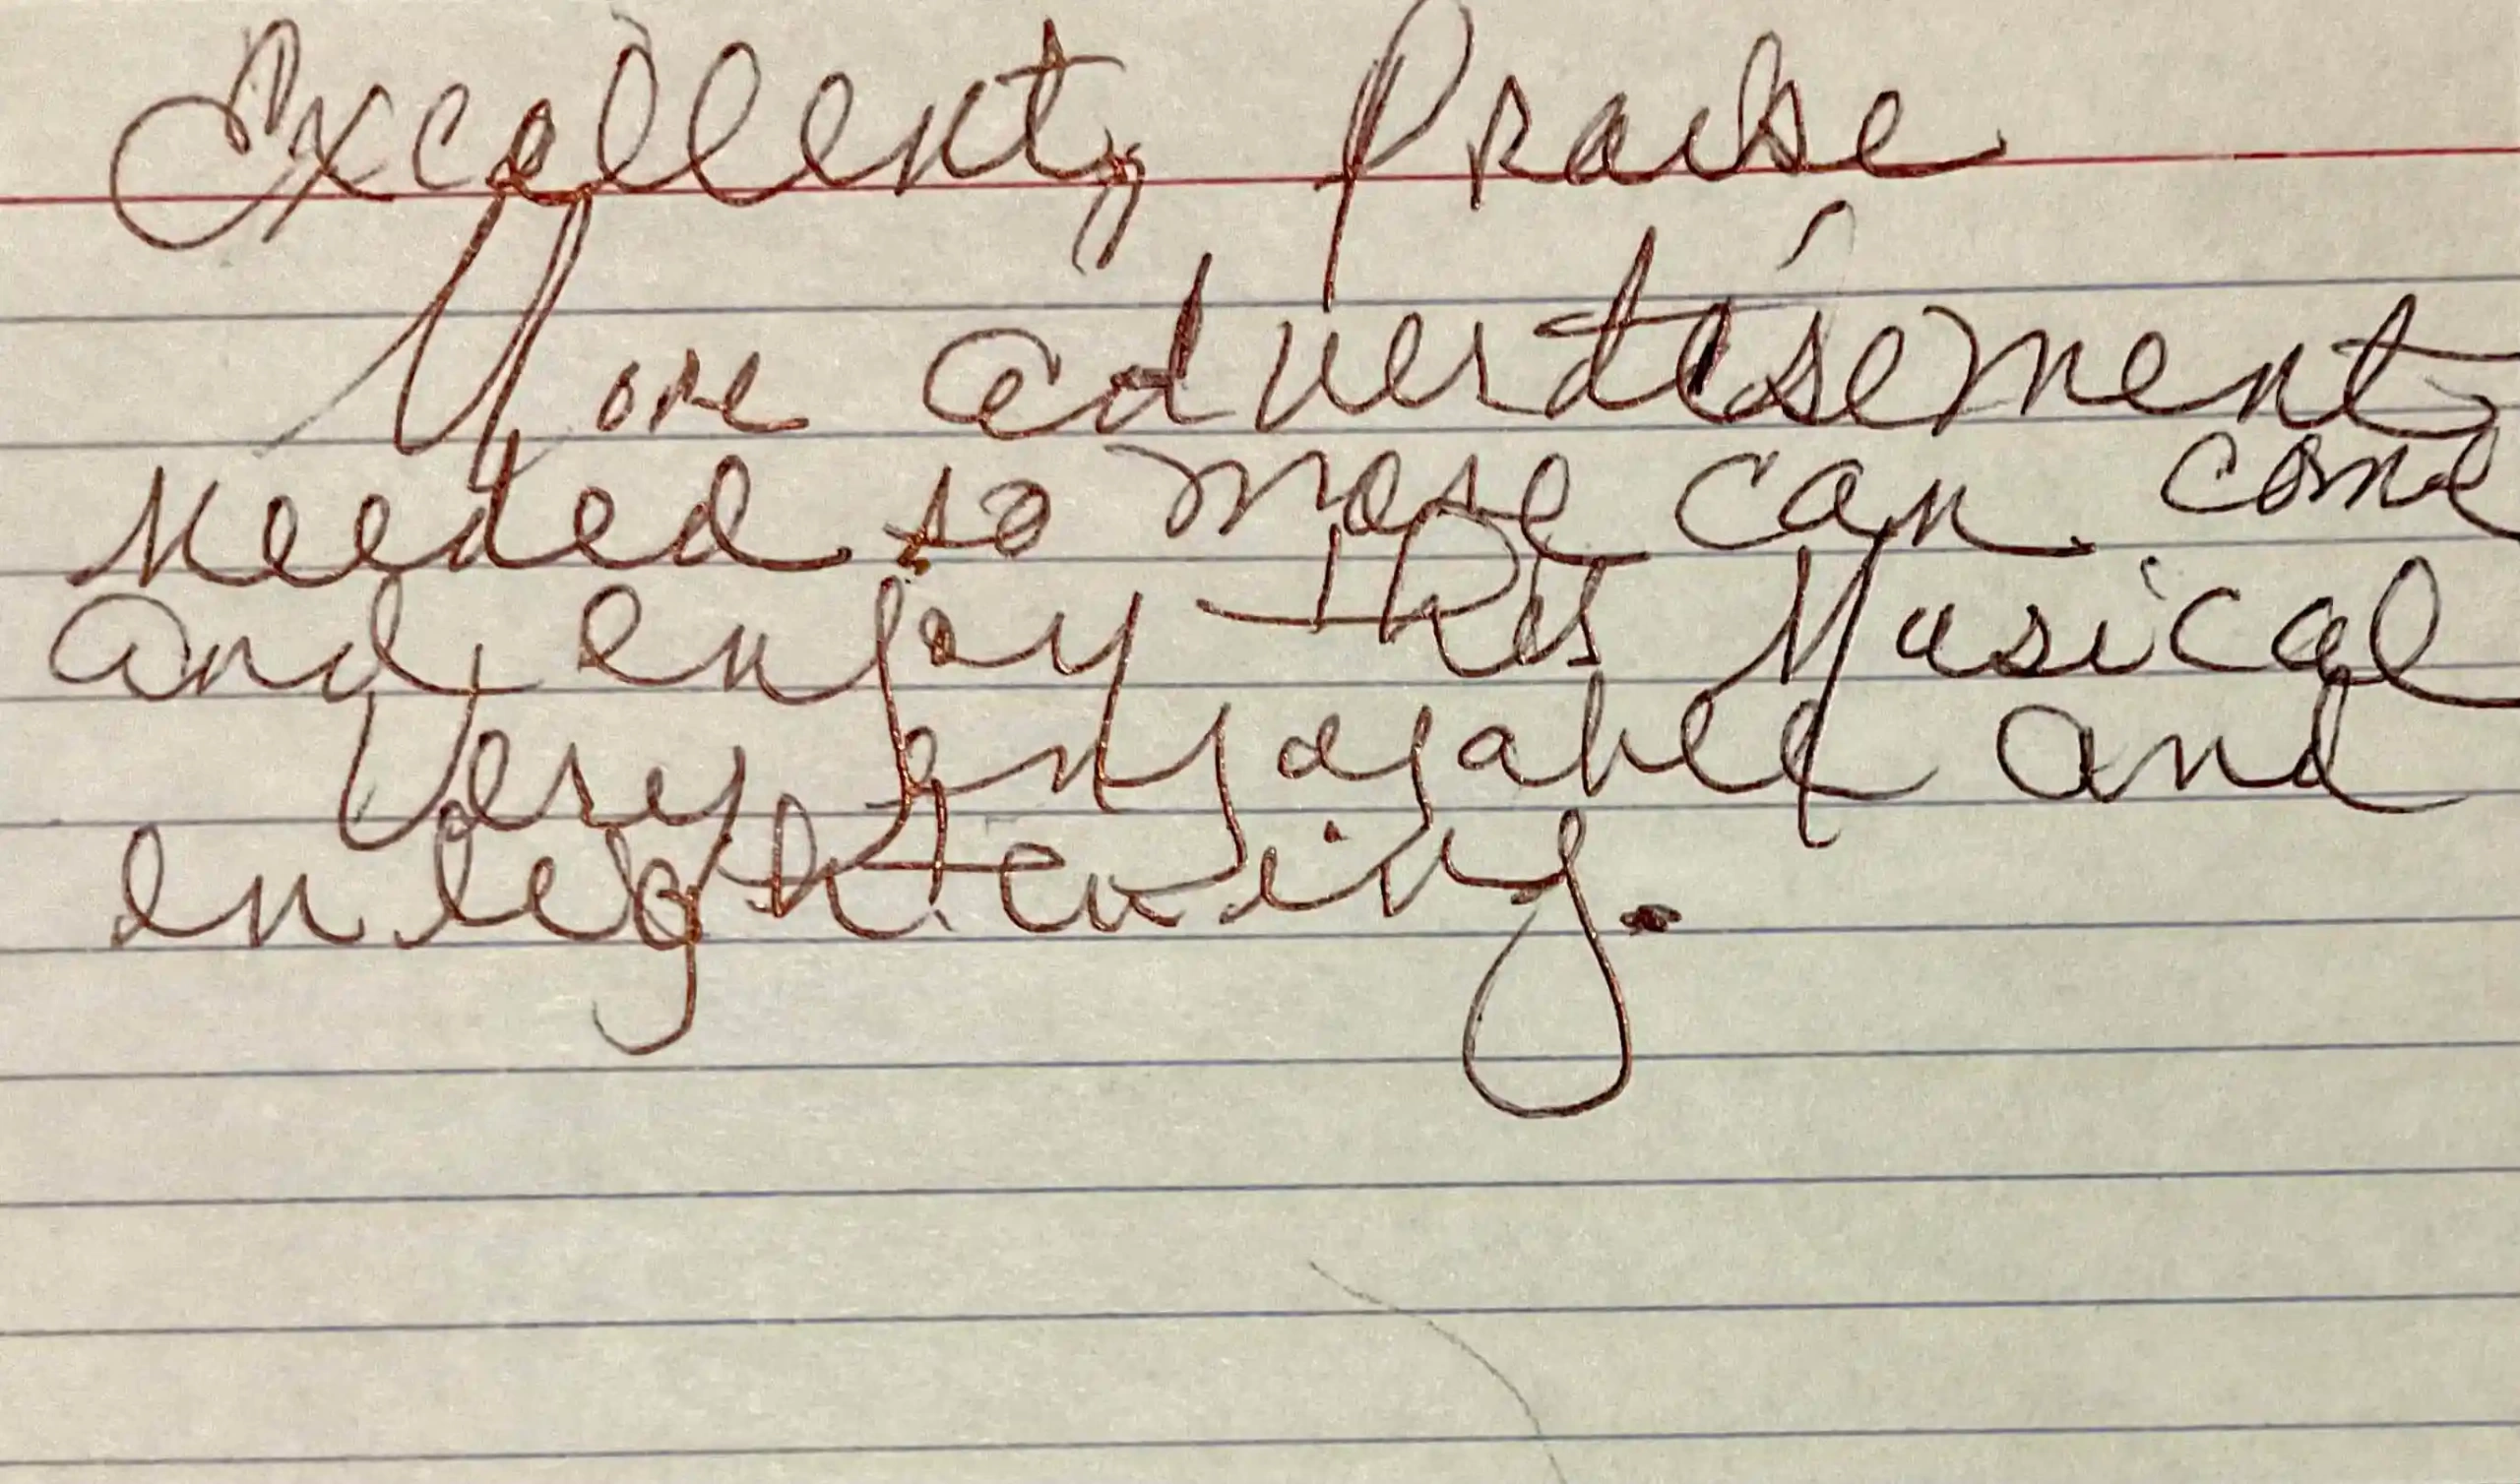 Excellent, Praise
More advertisement
needed so more can come
and enjoy this Musical
Very enjoyable and
enlightening.